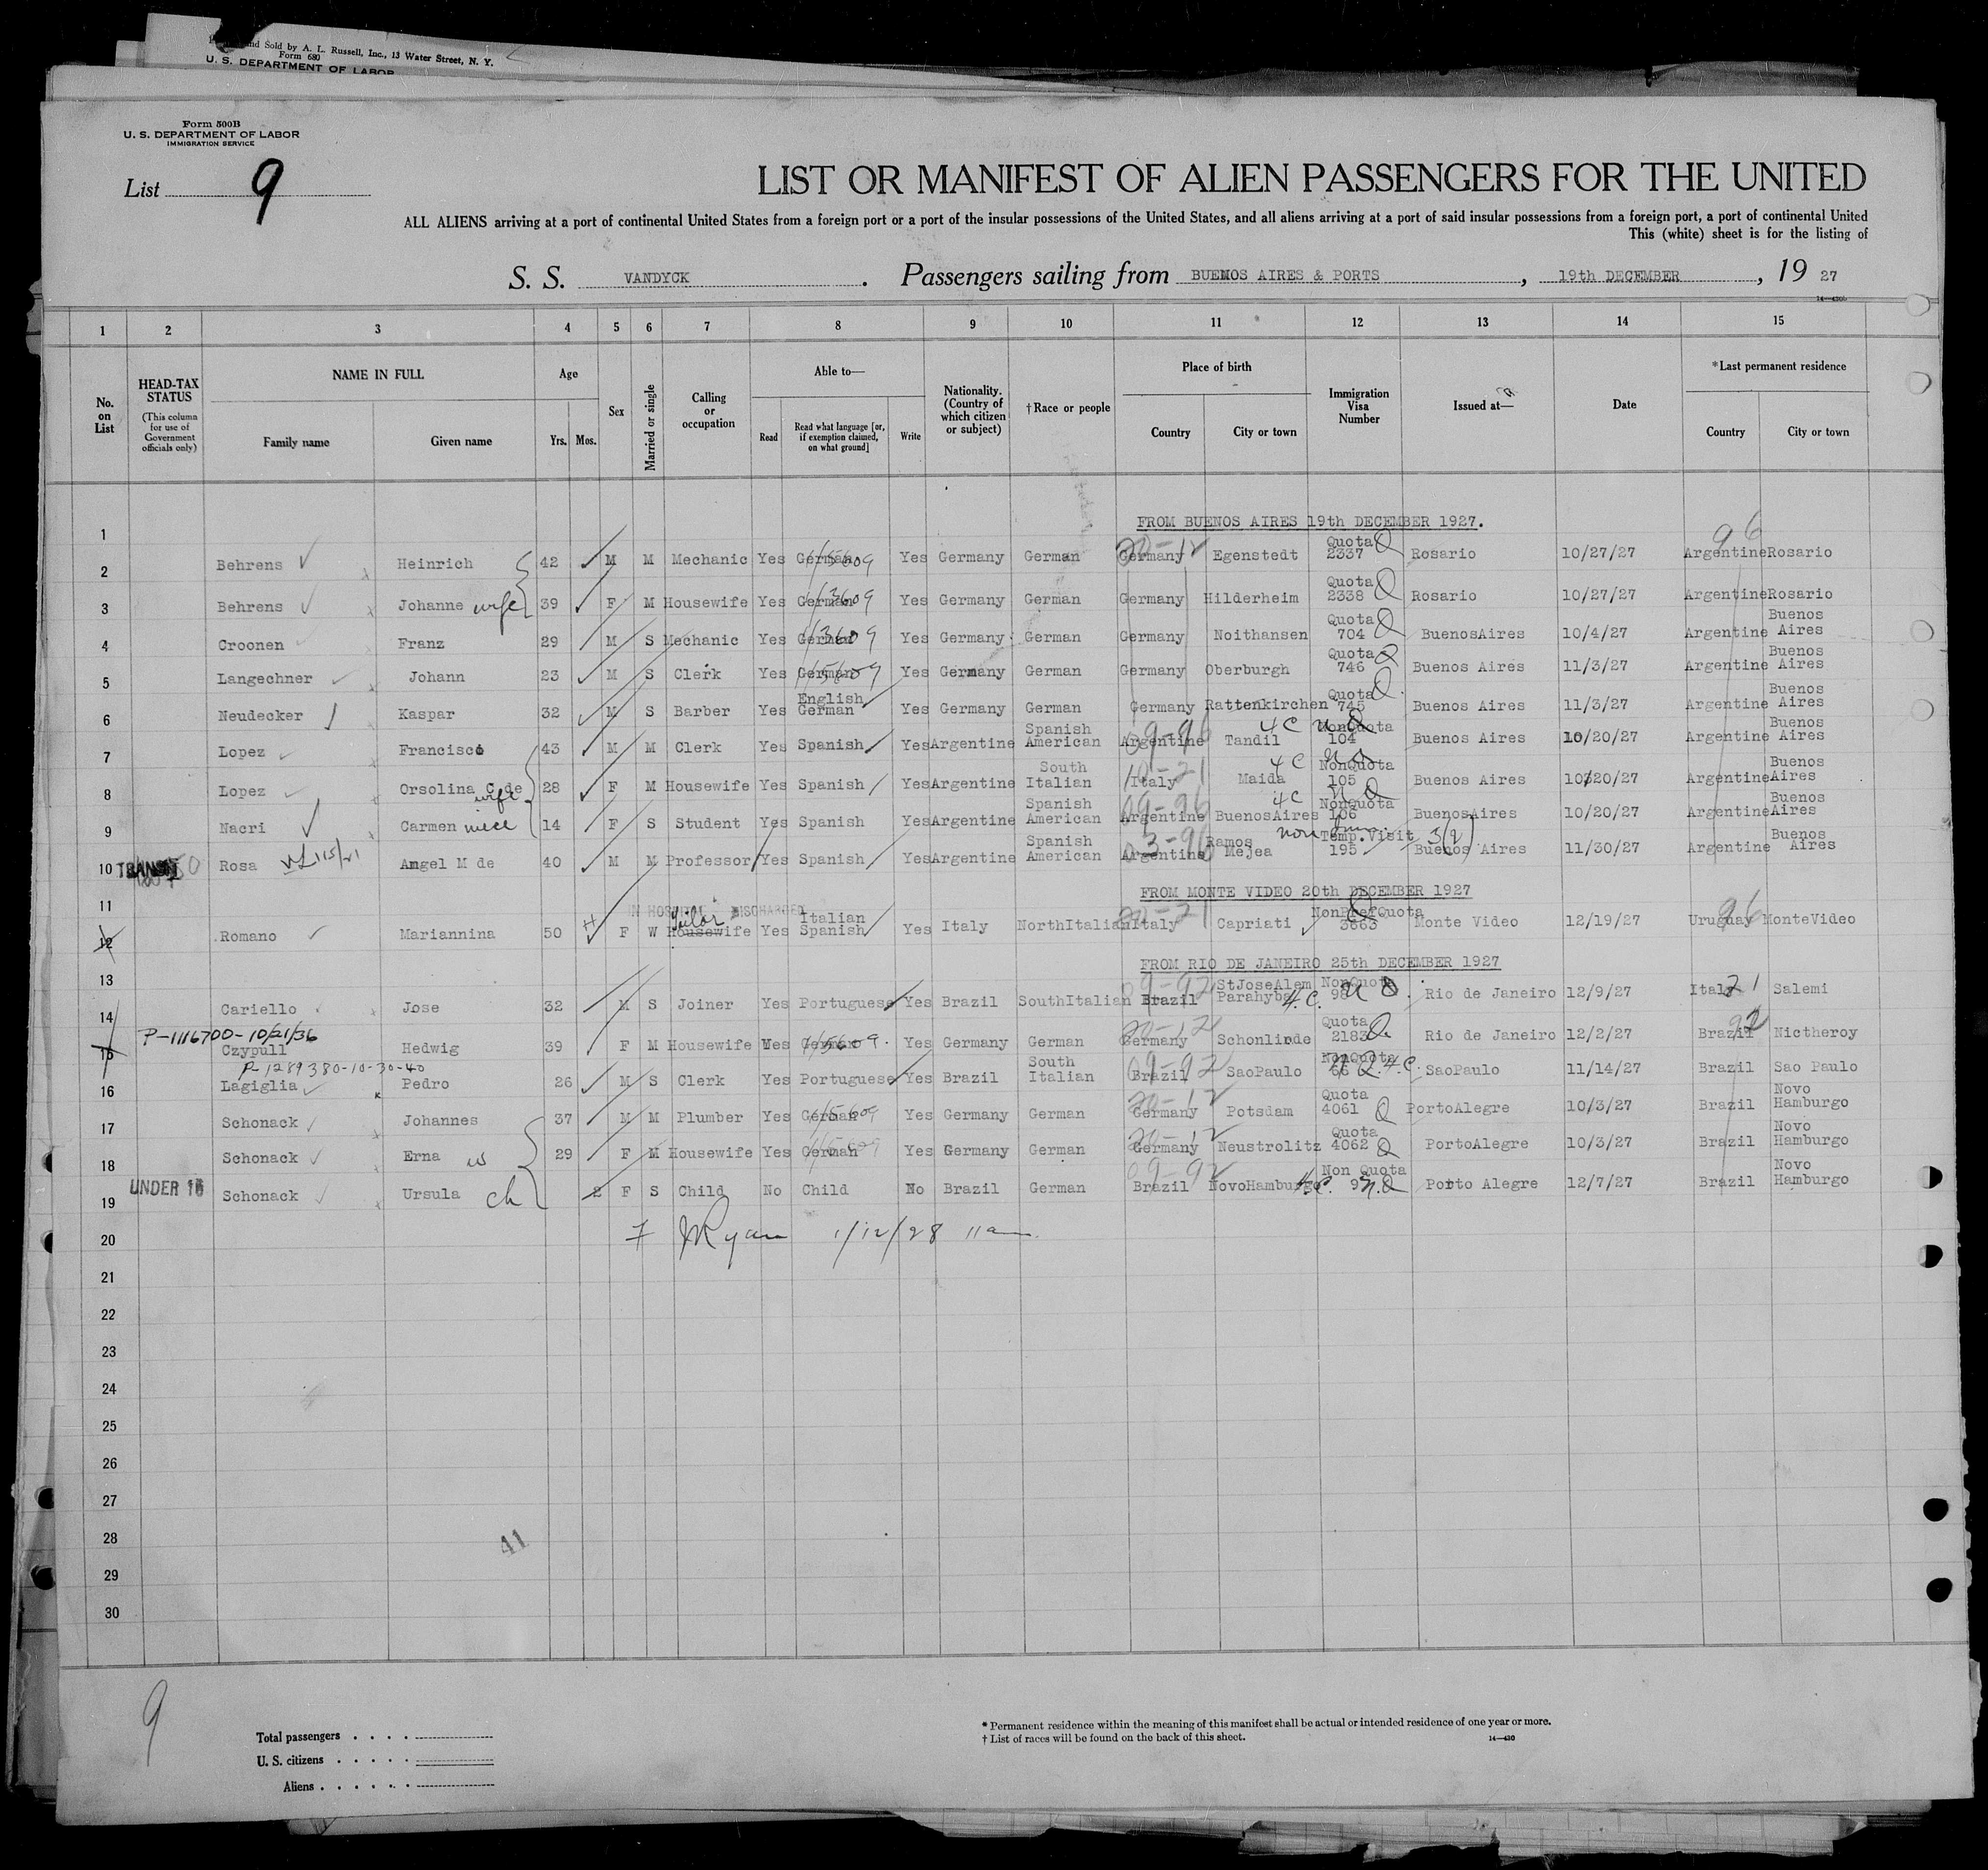 and Sold by A. L. Russell, Inc., 13 Water Street, N. Y.
Form 680
U. S. DEPARTMENT OF LABOR
Form 500B
U. S. DEPARTMENT OF LABOR
IMMIGRATION SERVICE
List 9
LIST OR MANIFEST OF ALIEN PASSENGERS FOR THE UNITED
ALL ALIENS arriving at a port of continental United States from a foreign port or a port of the insular possessions of the United States, and all aliens arriving at a port of said insular possessions from a foreign port, a port of continental United
This (white) sheet is for the listing of
S. S. VANDYCK. Passengers sailing from BUENOS AIRES & PORTS, 19th DECEMBER, 1927
14-430b
1 2 3 4 5 6 7 8 9 10 11 12 13 14 15
No. on List
HEAD-TAX STATUS
(This column for use of Government officials only)
NAME IN FULL
Family name Given name
Age
Yrs. Mos.
Sex
Married or single
Calling or occupation
Able to—
Read
Read what language [or, if exemption claimed, on what ground]
Write
Nationality. (Country of which citizen or subject)
†Race or people
Place of birth
Country City or town
Immigration Visa Number
Issued at—
Date
*Last permanent residence
Country City or town
1 FROM BUENOS AIRES 19th DECEMBER 1927. 96
2 Behrens Heinrich 42 M M Mechanic Yes German Yes Germany German Germany Egenstedt Quota 2337 Q Rosario 10/27/27 Argentine Rosario
3 Behrens Johanne wife 39 F M Housewife Yes German Yes Germany German Germany Hilderheim Quota 2338 Q Rosario 10/27/27 Argentine Rosario
4 Croonen Franz 29 M S Mechanic Yes German Yes Germany German Germany Noithansen Quota 704 Q BuenosAires 10/4/27 Argentine Buenos Aires
5 Langechner Johann 23 M S Clerk Yes German Yes Germany German Germany Oberburgh Quota 746 Q Buenos Aires 11/3/27 Argentine Buenos Aires
6 Neudecker Kaspar 32 M S Barber Yes English German Yes Germany German Germany Rattenkirchen Quota 745 Q Buenos Aires 11/3/27 Argentine Buenos Aires
7 Lopez Francisco 43 M M Clerk Yes Spanish Yes Argentine Spanish American Argentine 09-96 Tandil 4C NonQuota 104 Buenos Aires 10/20/27 Argentine Buenos Aires
8 Lopez Orsolina C de wife 28 F M Housewife Yes Spanish Yes Argentine South Italian Italy Maida 4C NonQuota 105 Buenos Aires 10/20/27 Argentine Buenos Aires
9 Nacri Carmen niece 14 F S Student Yes Spanish Yes Argentine Spanish American Argentine 09-96 BuenosAires 4C NonQuota 106 BuenosAires 10/20/27 Argentine Buenos Aires
10 TRANSIT Rosa Angel M de 40 M M Professor Yes Spanish Yes Argentine Spanish American Argentine Ramos Mejea Temp.Visit 195 3(2) Buenos Aires 11/30/27 Argentine Buenos Aires
11 FROM MONTE VIDEO 20th DECEMBER 1927
IN HOSPITAL DISCHARGED
12 Romano Mariannina 50 F W Housewife Yes Italian Spanish Yes Italy NorthItalian Italy Capriati NonPrefQuota 3663 Monte Video 12/19/27 Uruguay MonteVideo
13 FROM RIO DE JANEIRO 25th DECEMBER 1927
14 Cariello Jose 32 M S Joiner Yes Portuguese Yes Brazil SouthItalian Brazil StJoseAlem Parahyba 4.C. NonQuota 98 Rio de Janeiro 12/9/27 Italy 21 Salemi
P-1116700-10/21/36
15 Czypull Hedwig 39 F M Housewife Yes German Yes Germany German Germany Schonlinde Quota 2183 Q Rio de Janeiro 12/2/27 Brazil Nictheroy
P-1289380-10-30-40
16 Lagiglia Pedro 26 M S Clerk Yes Portuguese Yes Brazil South Italian Brazil 09-92 SaoPaulo NonQuota 66 4.C. SaoPaulo 11/14/27 Brazil Sao Paulo
17 Schonack Johannes 37 M M Plumber Yes German Yes Germany German Germany Potsdam Quota 4061 Q PortoAlegre 10/3/27 Brazil Novo Hamburgo
18 Schonack Erna 29 F M Housewife Yes German Yes Germany German Germany Neustrolitz Quota 4062 Q PortoAlegre 10/3/27 Brazil Novo Hamburgo
19 UNDER 16 Schonack Ursula ch 2 F S Child No Child No Brazil German Brazil 09-92 NovoHamburgo Non Quota Porto Alegre 12/7/27 Brazil Novo Hamburgo
20 Ryan 1/12/28 11am
21
22
23
24
25
26
27
28 41
29
30
9
Total passengers . . . .
U. S. citizens . . . . .
Aliens . . . . . .
* Permanent residence within the meaning of this manifest shall be actual or intended residence of one year or more.
† List of races will be found on the back of this sheet. 14-430